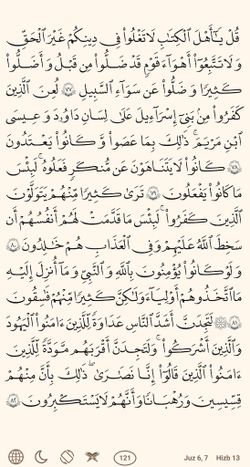 قُلْ يَٰٓأَهْلَ ٱلْكِتَٰبِ لَا تَغْلُوا۟ فِى دِينِكُمْ غَيْرَ ٱلْحَقِّ
وَلَا تَتَّبِعُوٓا۟ أَهْوَآءَ قَوْمٍ قَدْ ضَلُّوا۟ مِن قَبْلُ وَأَضَلُّوا۟
كَثِيرًا وَضَلُّوا۟ عَن سَوَآءِ ٱلسَّبِيلِ ٧٧ لُعِنَ ٱلَّذِينَ
كَفَرُوا۟ مِنۢ بَنِىٓ إِسْرَٰٓءِيلَ عَلَىٰ لِسَانِ دَاوُۥدَ وَعِيسَى
ٱبْنِ مَرْيَمَ ۚ ذَٰلِكَ بِمَا عَصَوا۟ وَّكَانُوا۟ يَعْتَدُونَ
٧٨ كَانُوا۟ لَا يَتَنَاهَوْنَ عَن مُّنكَرٍ فَعَلُوهُ ۚ لَبِئْسَ
مَا كَانُوا۟ يَفْعَلُونَ ٧٩ تَرَىٰ كَثِيرًا مِّنْهُمْ يَتَوَلَّوْنَ
ٱلَّذِينَ كَفَرُوا۟ ۚ لَبِئْسَ مَا قَدَّمَتْ لَهُمْ أَنفُسُهُمْ أَن
سَخِطَ ٱللَّهُ عَلَيْهِمْ وَفِى ٱلْعَذَابِ هُمْ خَٰلِدُونَ ٨٠
وَلَوْ كَانُوا۟ يُؤْمِنُونَ بِٱللَّهِ وَٱلنَّبِىِّ وَمَآ أُنزِلَ إِلَيْهِ
مَا ٱتَّخَذُوهُمْ أَوْلِيَآءَ وَلَٰكِنَّ كَثِيرًا مِّنْهُمْ فَٰسِقُونَ
٨١ ۞ لَتَجِدَنَّ أَشَدَّ ٱلنَّاسِ عَدَٰوَةً لِّلَّذِينَ ءَامَنُوا۟ ٱلْيَهُودَ
وَٱلَّذِينَ أَشْرَكُوا۟ ۖ وَلَتَجِدَنَّ أَقْرَبَهُم مَّوَدَّةً لِّلَّذِينَ
ءَامَنُوا۟ ٱلَّذِينَ قَالُوٓا۟ إِنَّا نَصَٰرَىٰ ۚ ذَٰلِكَ بِأَنَّ مِنْهُمْ
قِسِّيسِينَ وَرُهْبَانًا وَأَنَّهُمْ لَا يَسْتَكْبِرُونَ ٨٢
121 Juz 6, 7 Hizb 13